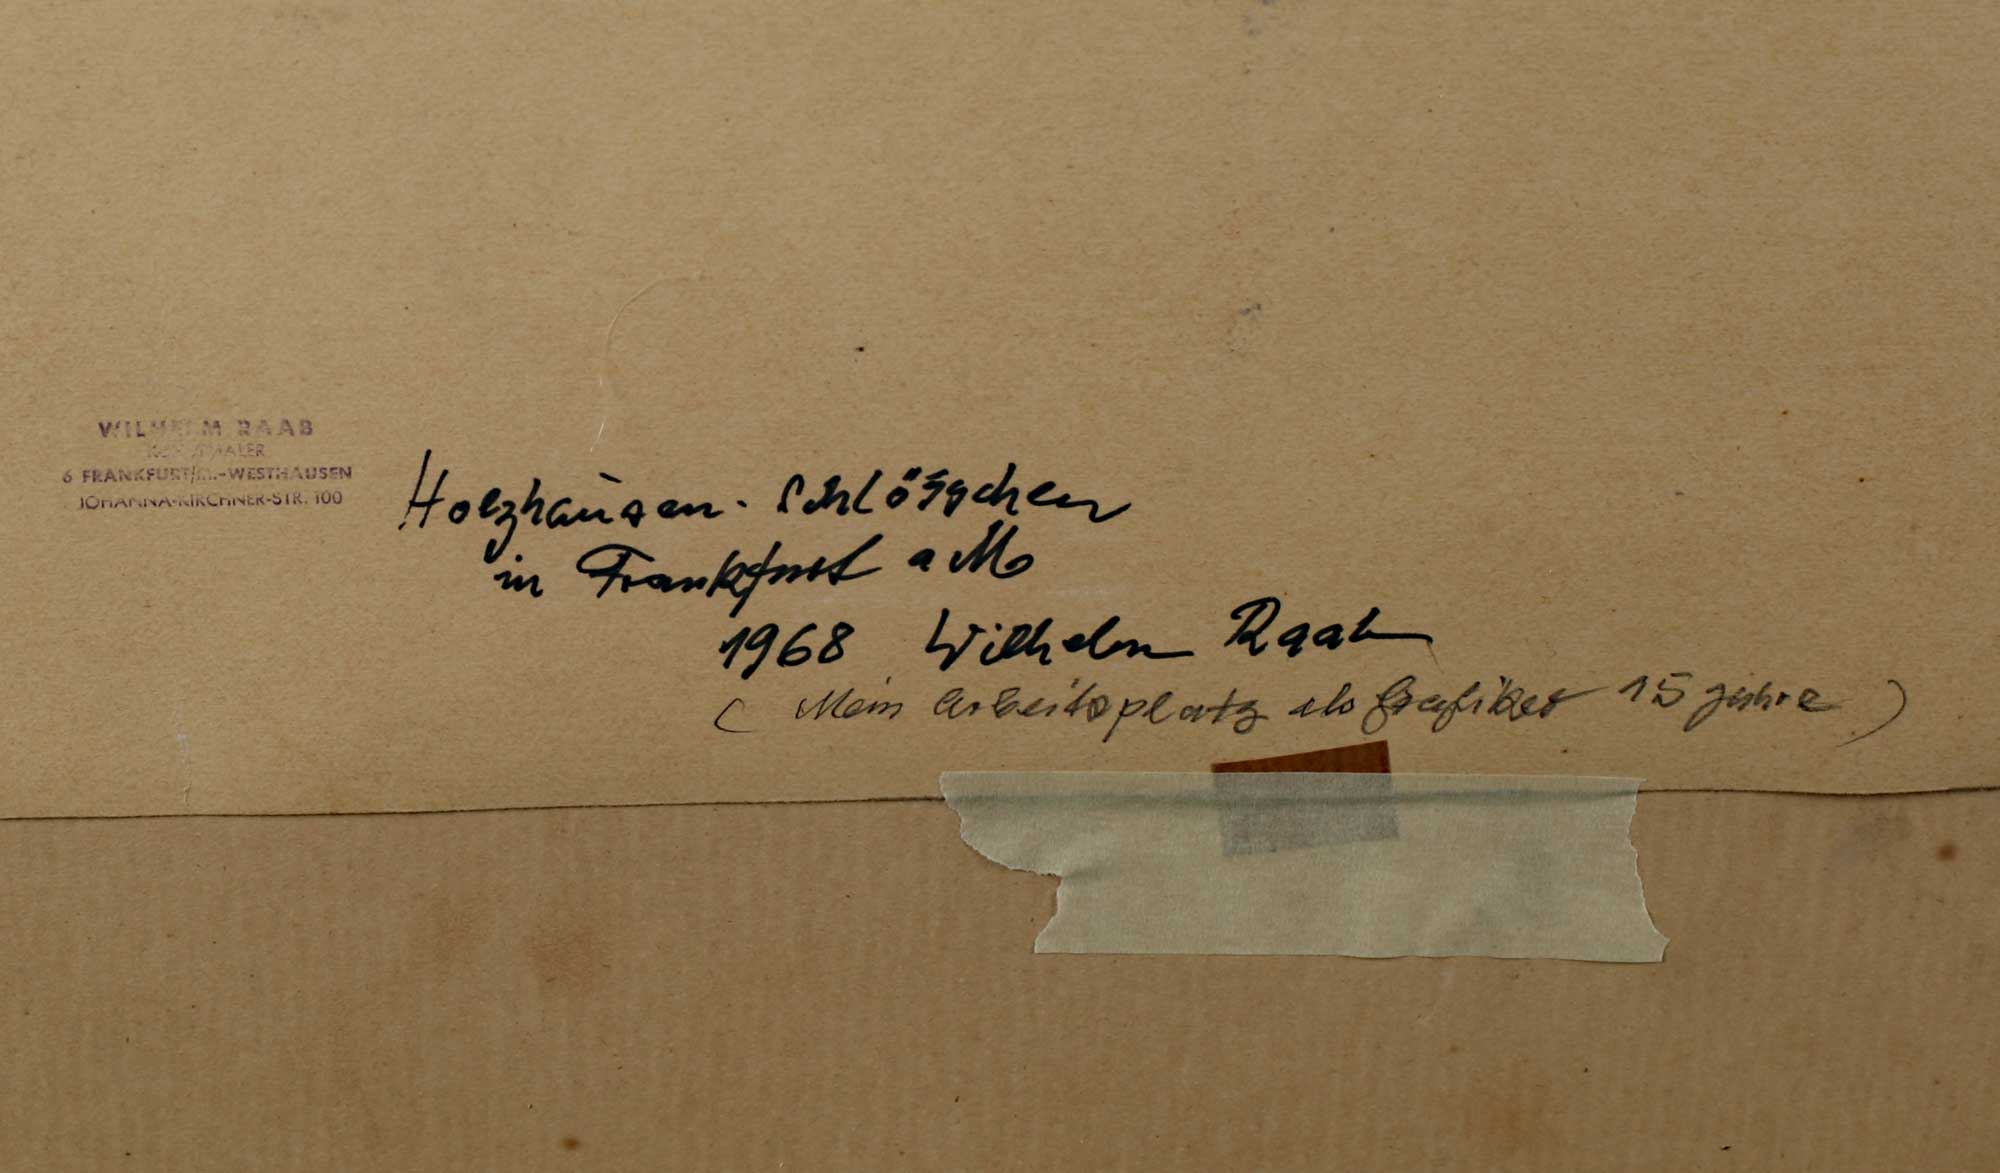 WILHELM RAAB
6 FRANKFURT/M.-WESTHAUSEN
JOHANNA-KIRCHNER-STR. 100
Holzhausen-Schlösschen
in Frankfurt a M
1968 Wilhelm Raab
(Mein Arbeitsplatz als Grafiker 15 Jahre)